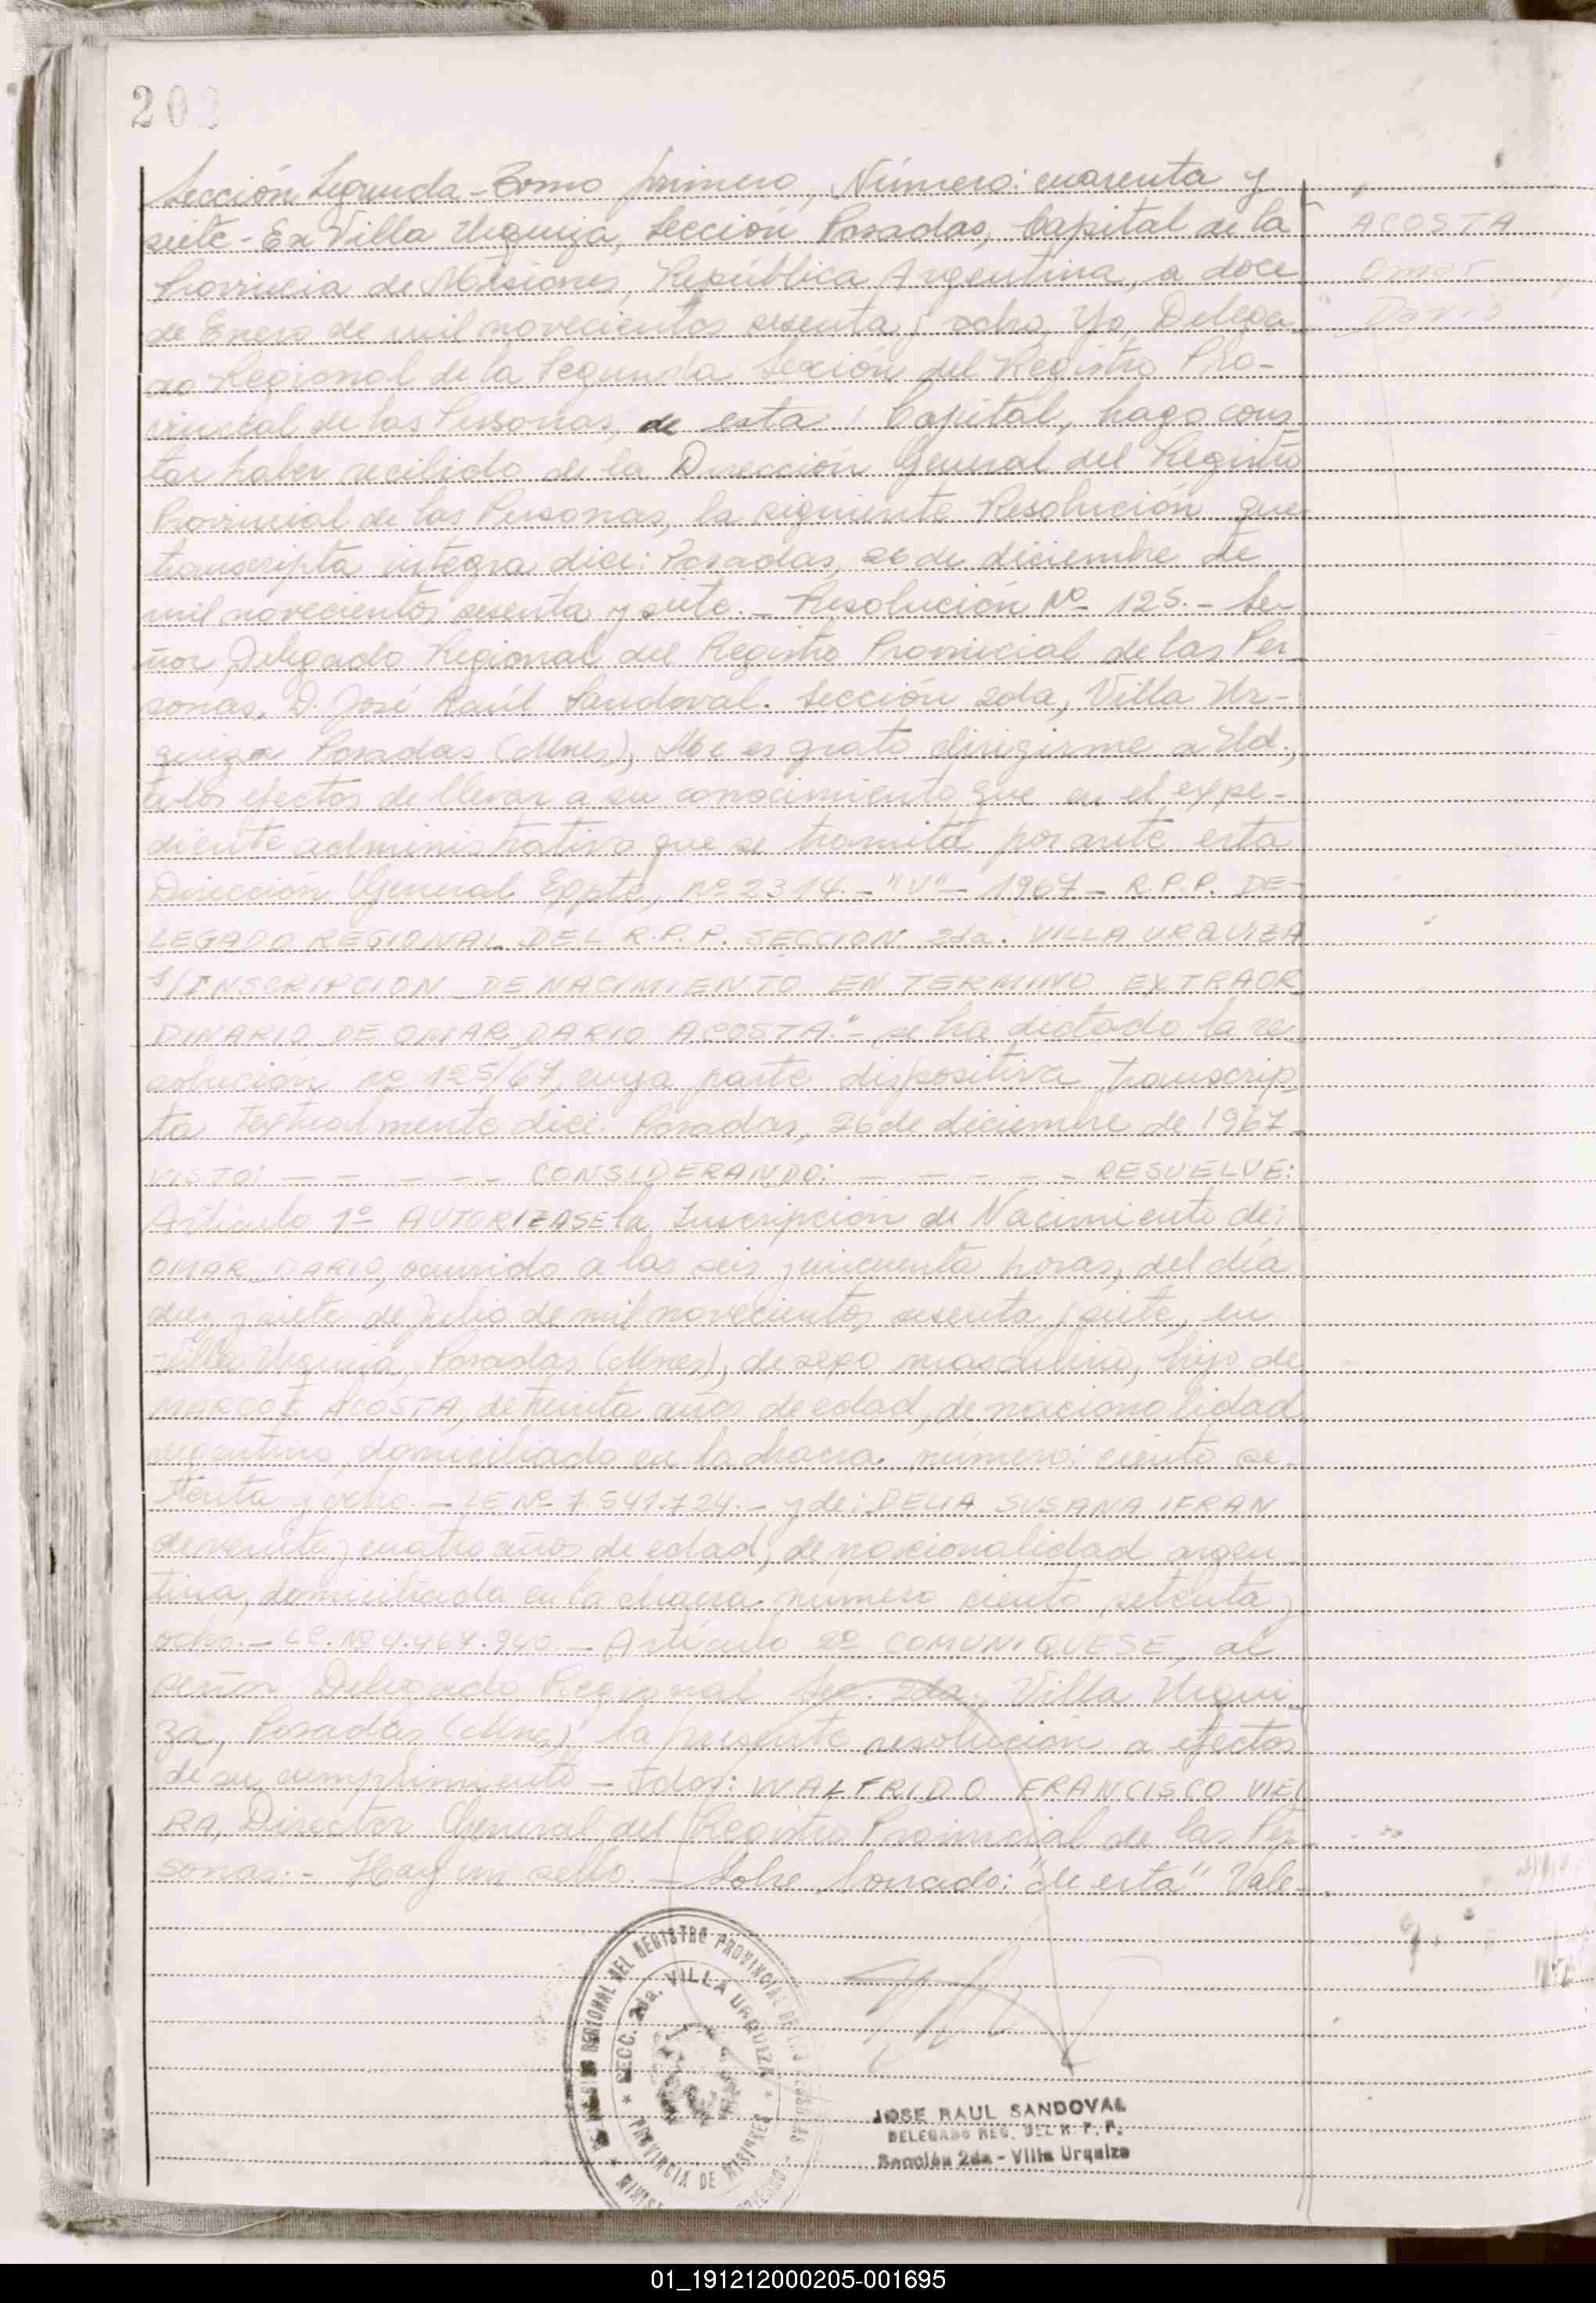 202
Sección Segunda - Tomo primero, Número: cuarenta y
siete - En Villa Urquiza, Sección Posadas, Capital de la
Provincia de Misiones, República Argentina, a doce
de Enero de mil novecientos sesenta y ocho, Yo, Delega-
do Regional de la Segunda Sección del Registro Pro-
vincial de las Personas, de esta Capital, hago cons
tar haber recibido de la Dirección General del Registro
Provincial de las Personas, la siguiente Resolución que
transcripta integra dice: Posadas, 26 de diciembre de
mil novecientos sesenta y siete. - Resolución Nº 125. - Se-
ñor Delegado Regional del Registro Provincial de las Per
sonas, D. José Raúl Sandoval. Sección 2da, Villa Ur-
quiza Posadas (Mnes), Me es grato dirigirme a Ud.,
a los efectos de llevar a su conocimiento que en el expe-
diente administrativo que se tramita por ante esta
Dirección General Eppte, nº 2314. - "V" - 1967 - R.P.P. DE-
LEGADO REGIONAL DEL R.P.P. SECCION 2da. VILLA URQUIZA
s/INSCRIPCION DE NACIMIENTO EN TERMINO EXTRAOR
DINARIO DE OMAR DARIO ACOSTA." - se ha dictado la re
solución nº 125/67, cuya parte dispositiva transcrip
ta textualmente dice: Posadas, 26 de diciembre de 1967
VISTO: - - - - - CONSIDERANDO: - - - - - RESUELVE:
Artículo 1º AUTORIZASE la Inscripción de Nacimiento de:
OMAR DARIO, ocurrido a las seis y cincuenta horas, del día
diez y siete de Julio de mil novecientos sesenta y siete, en
Villa Urquiza, Posadas (Mnes), de sexo masculino, hijo de
MARCOS ACOSTA, de treinta años de edad, de nacionalidad
argentino, domiciliado en la chacra. número: ciento se-
tenta y ocho. - LE Nº 7.541.724. - y de: DELIA SUSANA IFRAN
de veinte y cuatro años de edad, de nacionalidad argen
tina, domiciliada en la chacra número ciento setenta y
ocho. - LC. Nº 4.467.940. - Artículo 2º COMUNIQUESE, al
señor Delegado Regional Sec. 2da., Villa Urqui
za, Posadas (Mnes) la presente resolución a efectos
de su cumplimiento - Fdos: WALFRIDO FRANCISCO VIEI
RA, Director General del Registro Provincial de las Per-
sonas. - Hay un sello. - Sobre borrado: "de esta" Vale-
ACOSTA
Omar
Dario
REGIONAL DEL REGISTRO PROVINCIAL DE
SECC. 2da. VILLA URQUIZA
PROVINCIA DE MISIONES
JOSE RAUL SANDOVAL
DELEGADO REG. DEL R. P. P.
Sección 2da - Villa Urquiza
01_191212000205-001695